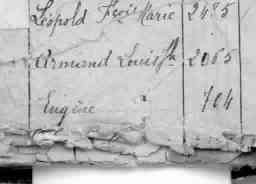 Léopold Fçois Marie 2485
Armand Louis 2065
Eugène " 704